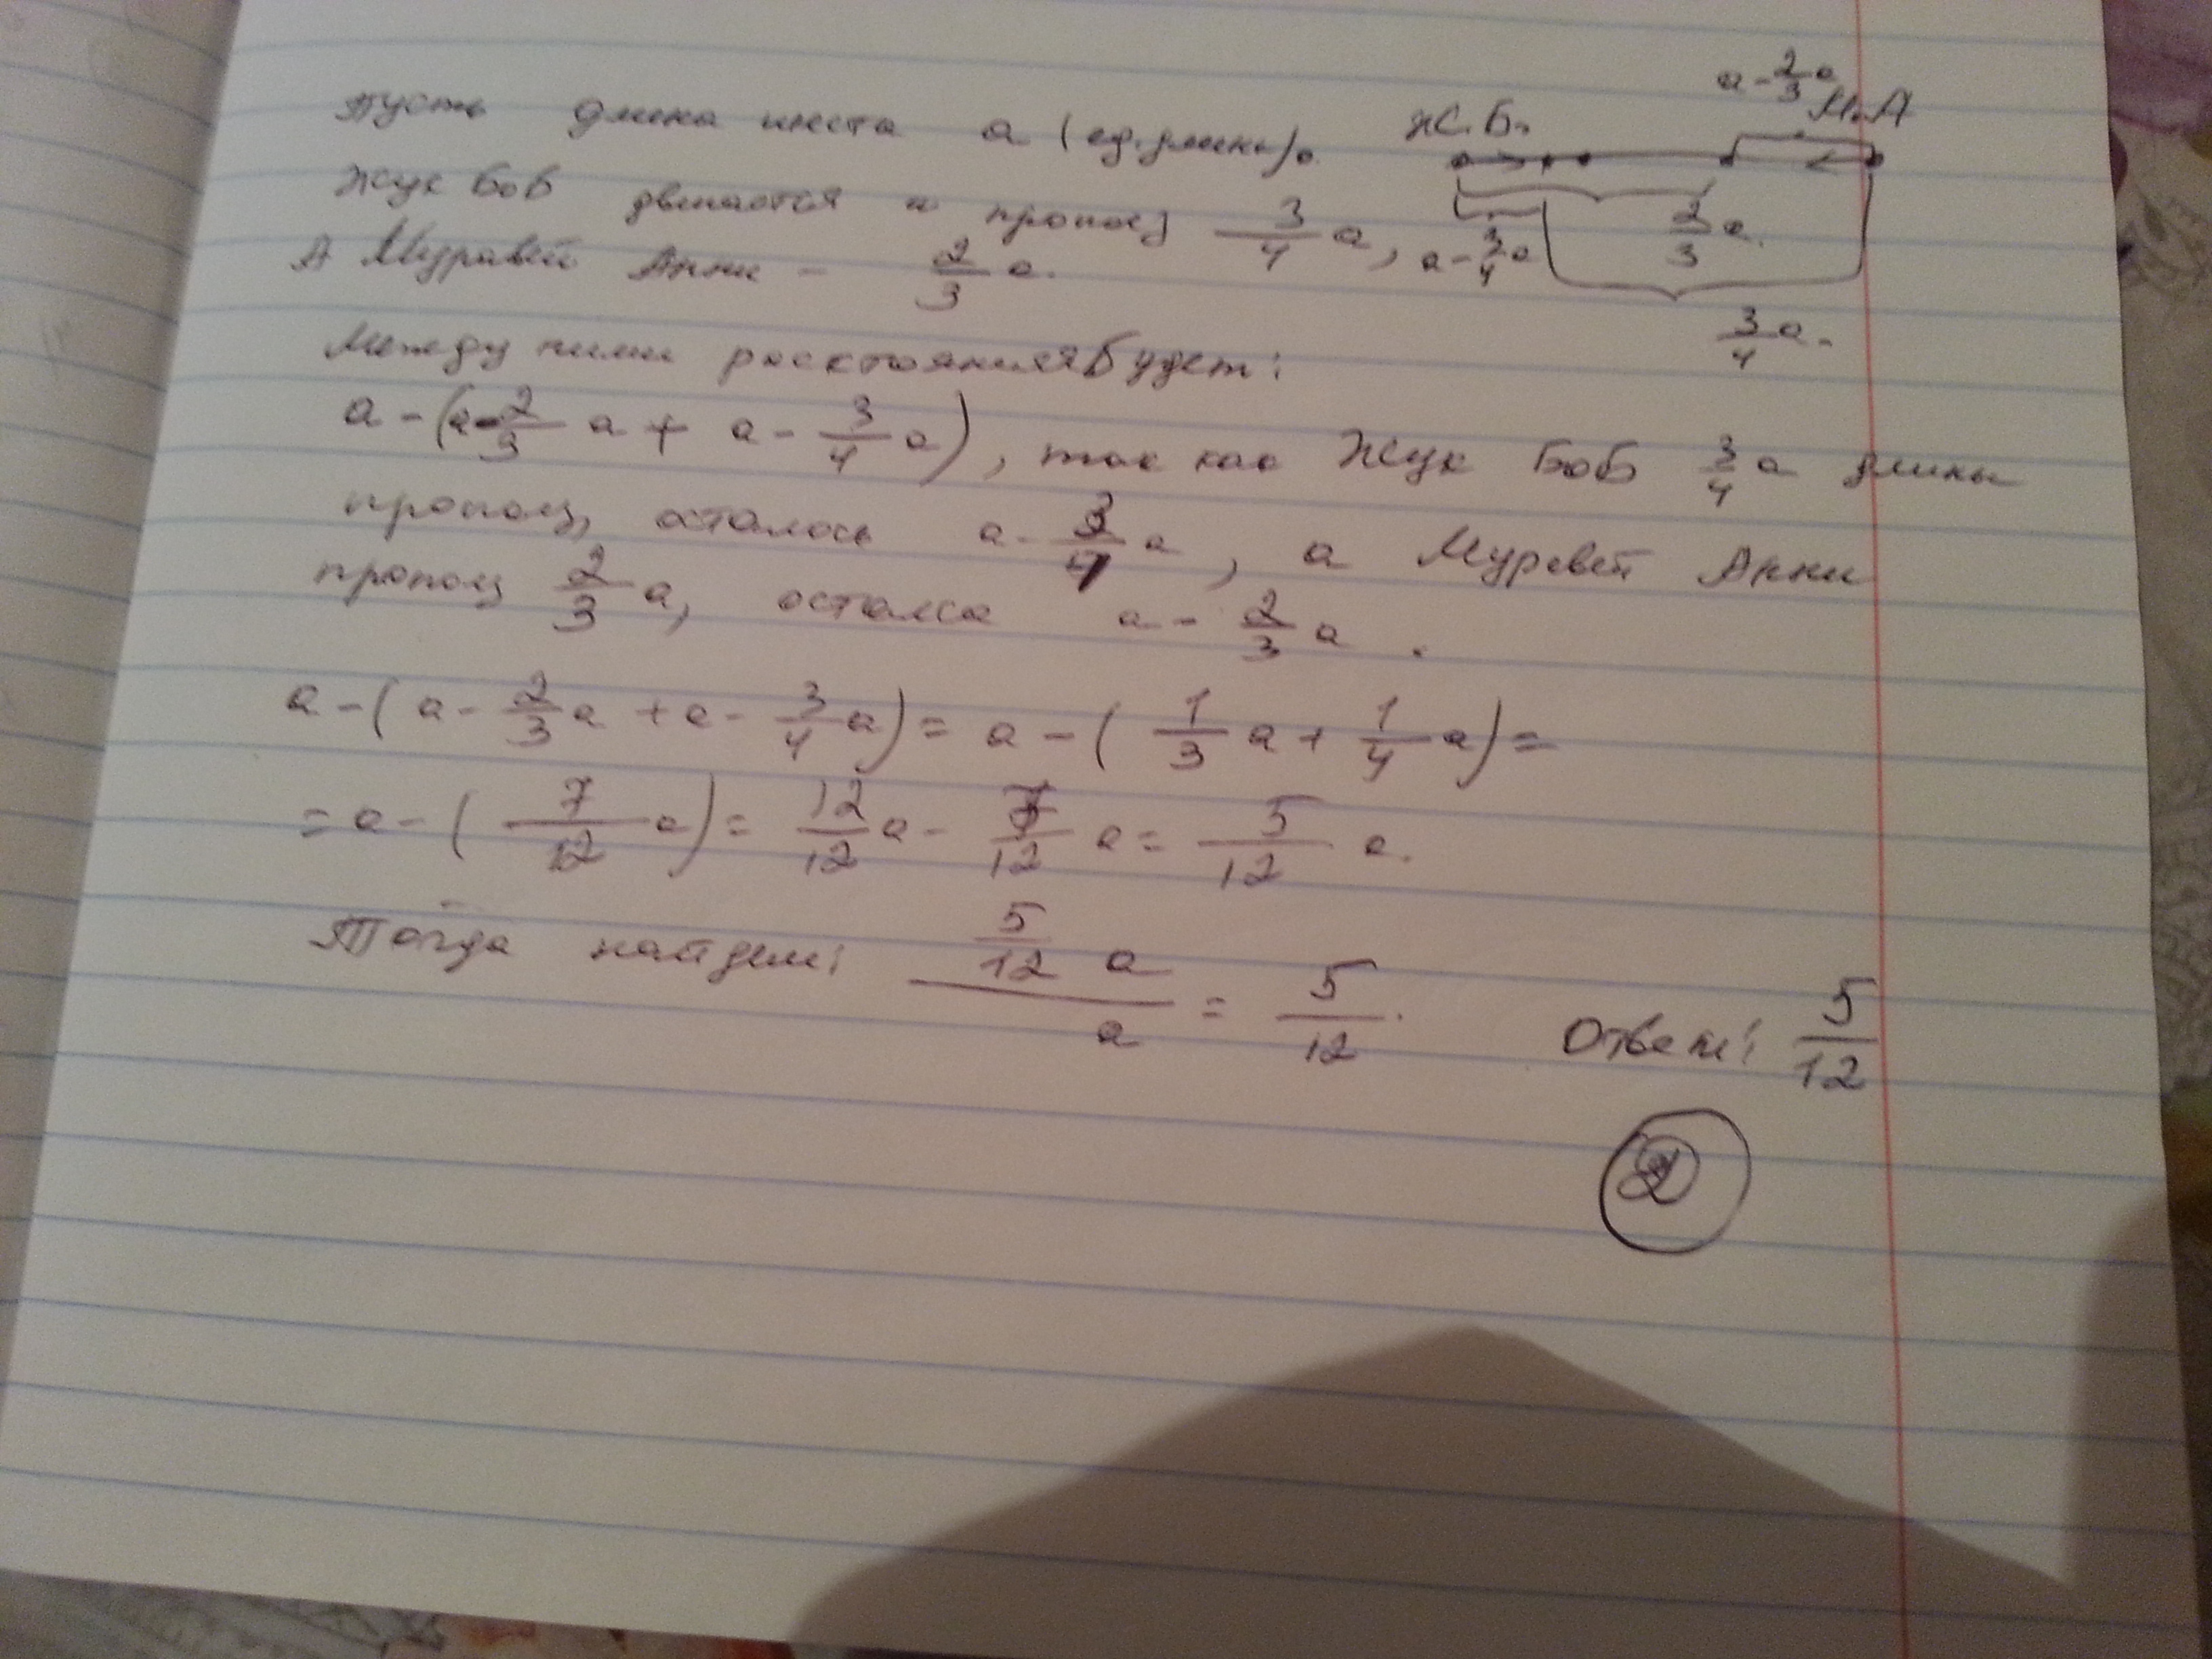 Пусть длина шеста a (ед. длины).
Жук Боб двигается и прополз 3/4 a,
А Муравей Анни - 2/3 a.
Ж.Б.
a - 2/3 a
М.А
a - 3/4 a
2/3 a.
3/4 a.
Между ними расстояния будет:
a - (a - 2/3 a + a - 3/4 a), так как Жук Боб 3/4 a длины
прополз, осталось a - 3/4 a, а Муравей Анни
прополз 2/3 a, остался a - 2/3 a.
a - (a - 2/3 a + a - 3/4 a) = a - (1/3 a + 1/4 a) =
= a - (7/12 a) = 12/12 a - 7/12 a = 5/12 a.
Тогда найдем: 5/12 a / a = 5/12.
Ответ: 5/12